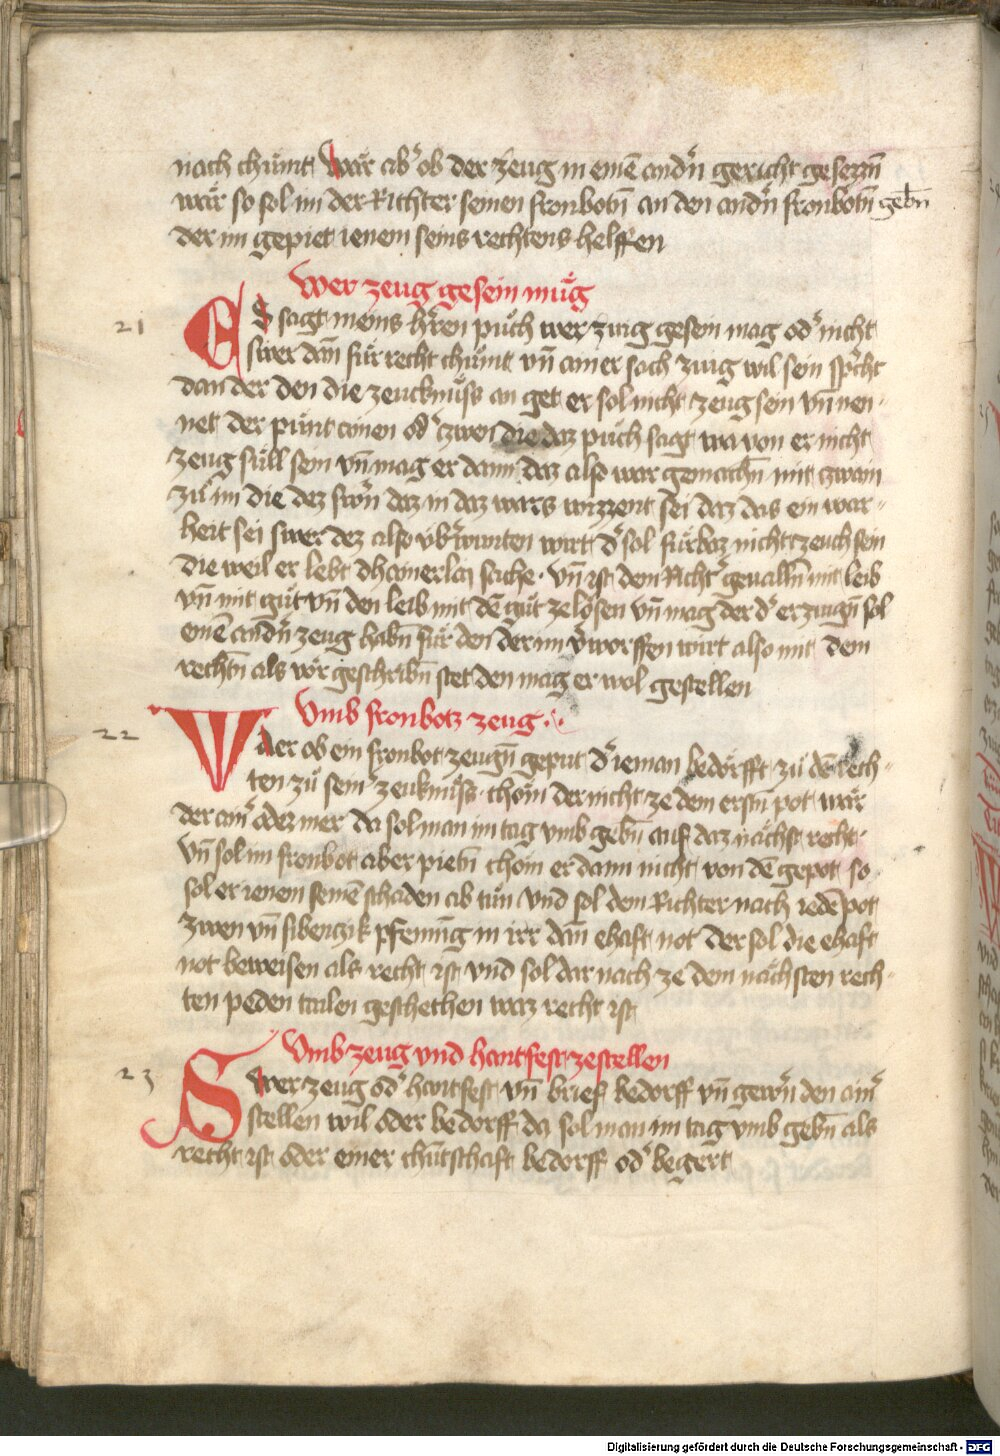 nach chumt Wär ab͛ ob der zeug in einē and͛n gericht gesezzn̄
wär so sol im der Richter seinen fronbotn̄ an den and͛n fronbotn̄ gebn̄
der im gepiet ienem seins rechtens helffen
Wer zeug gesein mu̇g
21
ES sagt meins h͛ren pu̇ch wer zwig gesein mag od͛ nicht
swer dan̄ für recht chumt vn̄ ainer sach zwig wil sein sp͛cht
dan der den die zeucknu̇ss an get er sol nicht zeug sein vn̄ nen-
net der pünt ainen od͛ czwen die daz pu̇ch sagt wa von er nicht
zeug süll sein vn̄ mag er dann daz also war gemachn̄ mit czwain
zu̇ im die dez swn̄ daz in daz wars wizzent sei daz das ein war-
heit sei swer dez also vb͛wunten wirt d͛ sol fürbaz nicht zeuch sein
die weil er lebt dhainerlay sache · vn̄ ist dem Richt͛ geualln̄ mit leib
vn̄ mit gu̇t vn̄ den leib mit dē gu̇t ze lösen vn̄ mag der d͛ erzwgn̄ sol
einē and͛n zeug habn̄ für den der im v͛worffen wirt also mit dem
rechtn̄ als vor geschribn̄ stet den mag er wol gestellen
Vmb fronbotz zeug
22
Wder ob ein fronbot zeugn̄ geput d͛ ieman bedörfft zu̇ dē rech-
ten zu̇ sein͛ zeuknüss · chöm der nicht ze dem erstn̄ pot wär
der ain͛ odez mer da sol man im tag vmb gebn̄ auf daz nächst recht ·
vn̄ sol im fronbot aber pietn̄ chöm er dann nicht von dē gepot so
sol er ienem seinē schaden ab tu̇n vnd sol dem Richter nach iedē pot
zwen vn̄ sibenczik pfenning in irr dan̄ ehaft not der sol die ehaft
not beweisen als recht ist vnd sol dar nach ze dem nächsten rech-
ten peden tailen geschehen waz recht ist
Vmb zeug vnd hantfest ze stellen
23
Swer zeug od͛ hantfest vn̄ brief bedorff vn̄ gew͛n den ain͛
stellen wil oder bedorff da sol man im tag vmb gebn̄ als
recht ist oder einer chuntschaft bedorff od͛ begert
Digitalisierung gefördert durch die Deutsche Forschungsgemeinschaft - DFG